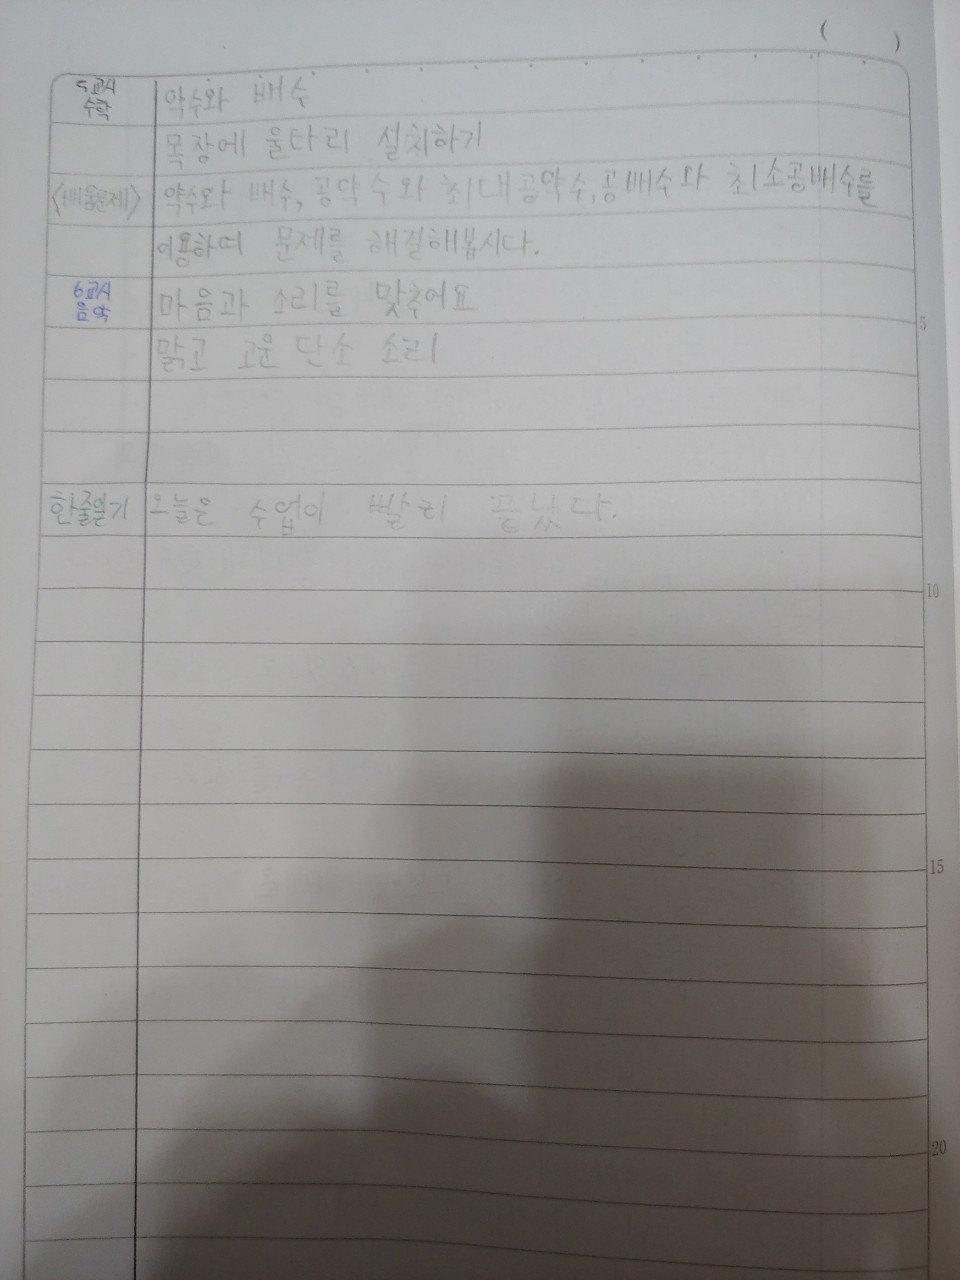 ( )
5교시
수학
약수와 배수
목장에 울타리 설치하기
<배움문제> 약수와 배수, 공약수와 최대공약수, 공배수와 최소공배수를
이용하여 문제를 해결해봅시다.
6교시
음악
마음과 소리를 맞추어요
5
맑고 고운 단소 소리
한줄일기 오늘은 수업이 빨리 끝났다.
10
15
20